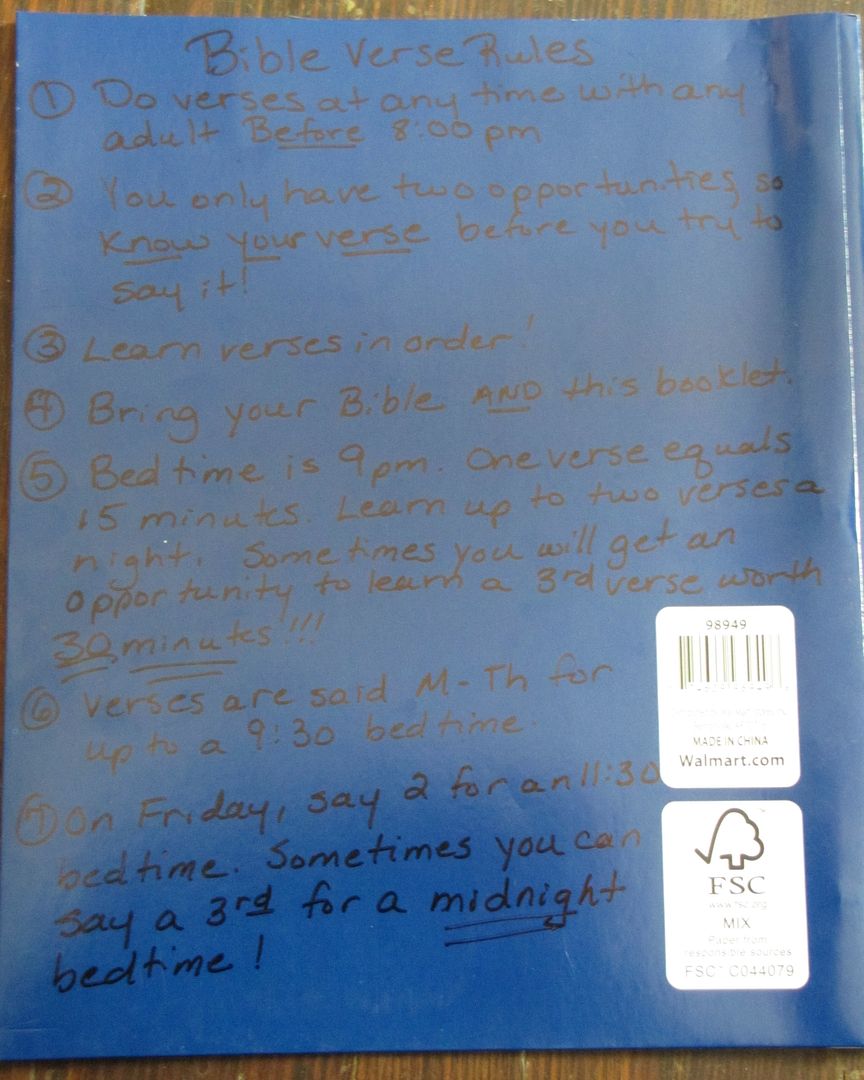 Bible Verse Rules
① Do verses at any time with any
adult Before 8:00 pm
② You only have two opportunities, so
know your verse before you try to
say it!
③ Learn verses in order!
④ Bring your Bible AND this booklet.
⑤ Bedtime is 9pm. One verse equals
15 minutes. Learn up to two verses a
night. Sometimes you will get an
opportunity to learn a 3rd verse worth
30 minutes!!!
⑥ Verses are said M-Th for
up to a 9:30 bedtime.
⑦ On Friday, say 2 for an 11:30
bedtime. Sometimes you can
say a 3rd for a midnight
bedtime!
98949
MADE IN CHINA
Walmart.com
FSC
www.fsc.org
MIX
Paper from
responsible sources
FSC™ C044079